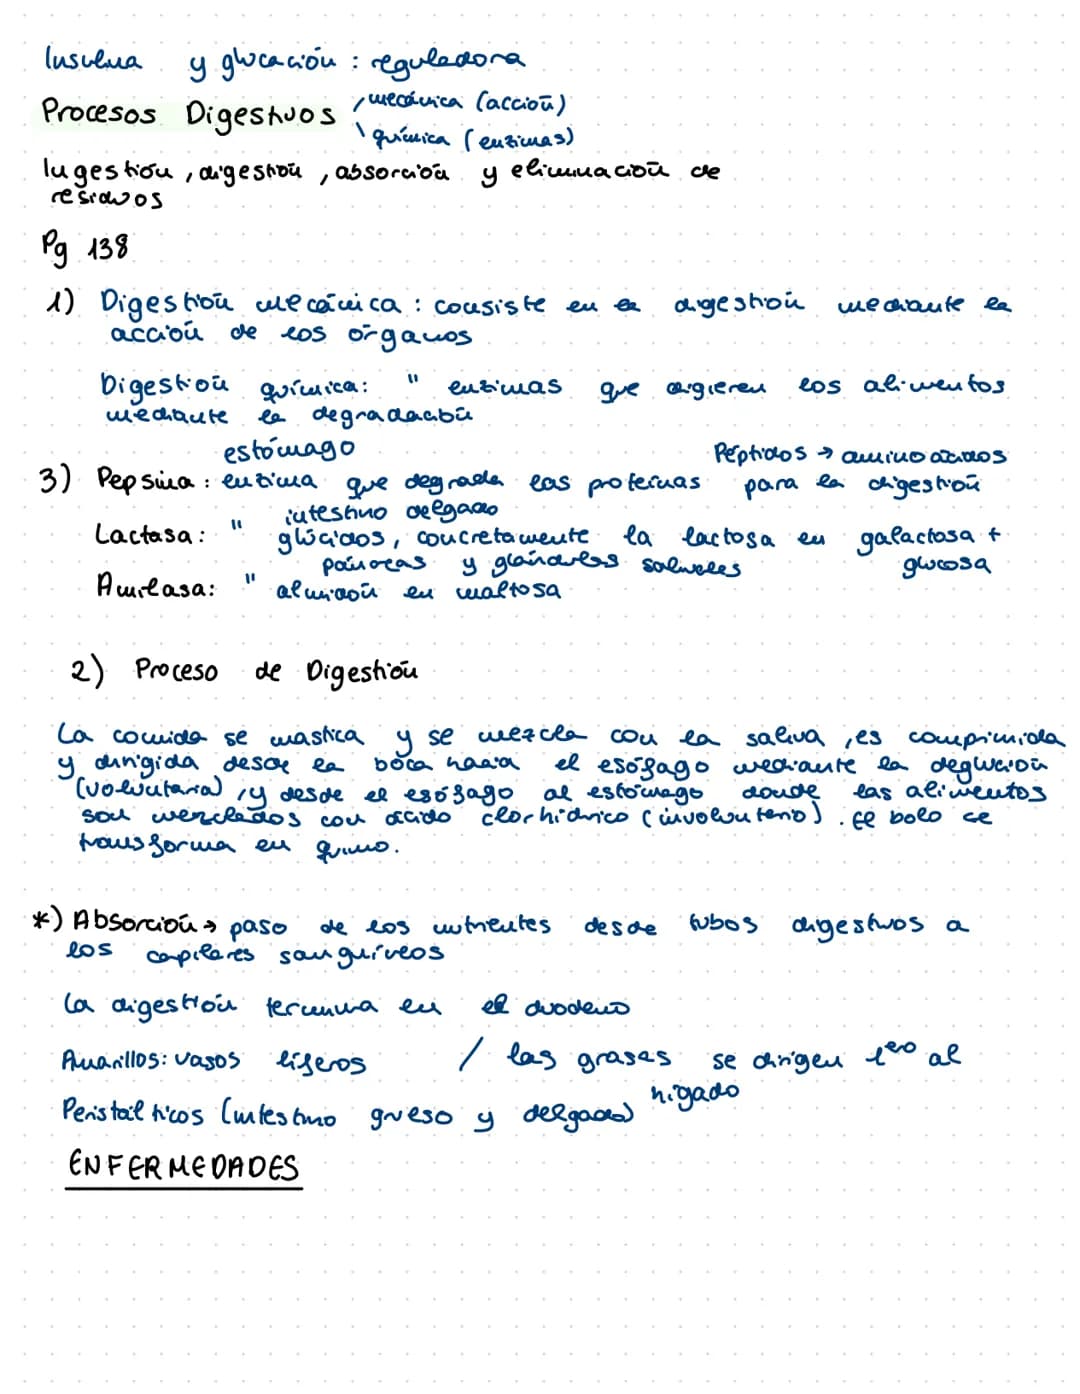 Insulina y glucación : reguladora
Procesos Digestivos / mecánica (acción)
\ química (enzimas)
Ingestión, digestión, absorción y eliminación de
residuos
Pg 138
1) Digestión mecánica : consiste en la digestión mediante la
acción de los órganos
Digestión química: " enzimas que digieren los alimentos
mediante la degradación
estómago
Péptidos → aminoácidos
3) Pepsina : enzima que degrada las proteínas para la digestión
intestino delgado
Lactasa: " glúcidos, concretamente la lactosa en galactosa +
glucosa
páncreas y glándulas salivales
Amilasa: " almidón en maltosa
2) Proceso de Digestión
La comida se mastica y se mezcla con la saliva, es comprimida
y dirigida desde la boca hacia el esófago mediante la deglución
(voluntaria), y desde el esófago al estómago donde las alimentos
son mezclados con ácido clorhídrico (involuntario). El bolo se
transforma en quimo.
*) Absorción → paso de los nutrientes desde tubos digestivos a
los capilares sanguíneos
La digestión termina en el duodeno
Amarillos: vasos liferos / las grasas se dirigen 1ero al
hígado
Peristálticos (intestino grueso y delgado)
ENFERMEDADES